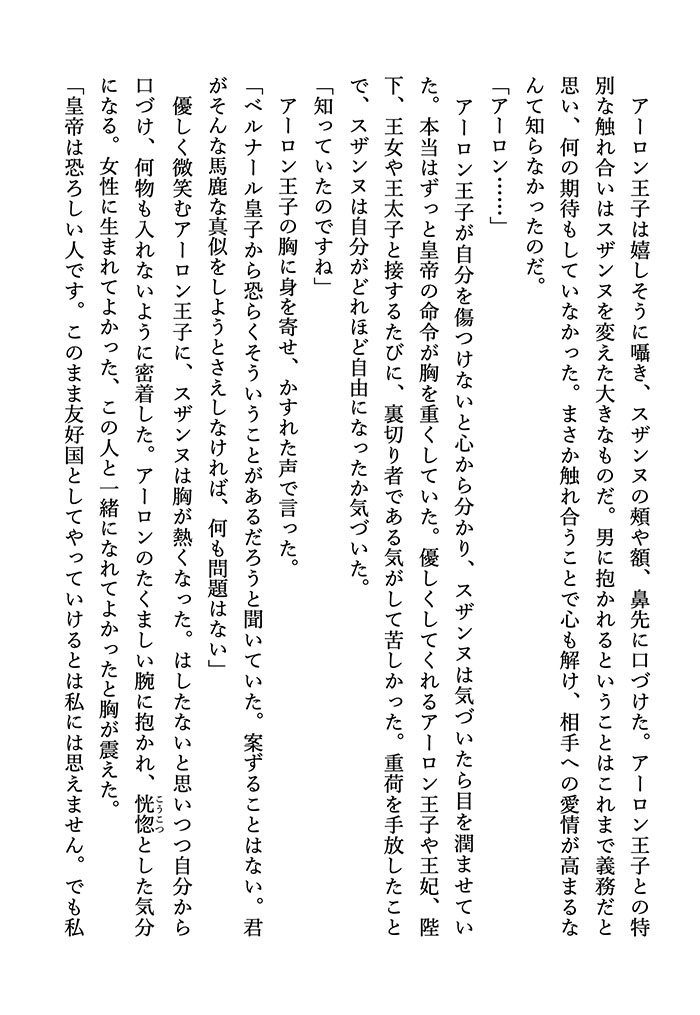 アーロン王子は嬉しそうに囁き、スザンヌの頬や額、鼻先に口づけた。アーロン王子との特
別な触れ合いはスザンヌを変えた大きなものだ。男に抱かれるということはこれまで義務だと
思い、何の期待もしていなかった。まさか触れ合うことで心も解け、相手への愛情が高まるな
んて知らなかったのだ。
「アーロン……」
　アーロン王子が自分を傷つけないと心から分かり、スザンヌは気づいたら目を潤ませてい
た。本当はずっと皇帝の命令が胸を重くしていた。優しくしてくれるアーロン王子や王妃、陛
下、王女や王太子と接するたびに、裏切り者である気がして苦しかった。重荷を手放したこと
で、スザンヌは自分がどれほど自由になったか気づいた。
「知っていたのですね」
　アーロン王子の胸に身を寄せ、かすれた声で言った。
「ベルナール皇子から恐らくそういうことがあるだろうと聞いていた。案ずることはない。君
がそんな馬鹿な真似をしようとさえしなければ、何も問題はない」
　優しく微笑むアーロン王子に、スザンヌは胸が熱くなった。はしたないと思いつつ自分から
口づけ、何物も入れないように密着した。アーロンのたくましい腕に抱かれ、恍惚こうこつとした気分
になる。女性に生まれてよかった、この人と一緒になれてよかったと胸が震えた。
「皇帝は恐ろしい人です。このまま友好国としてやっていけるとは私には思えません。でも私